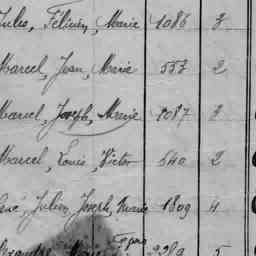 Jules, Félicien, Marie 1086 7
Marcel, Jean, Marie 557 2
Marcel, Joseph, Marie 1087 7
Marcel, Louis, Victor 540 2
René, Julien, Joseph, Marie 1809 4
5